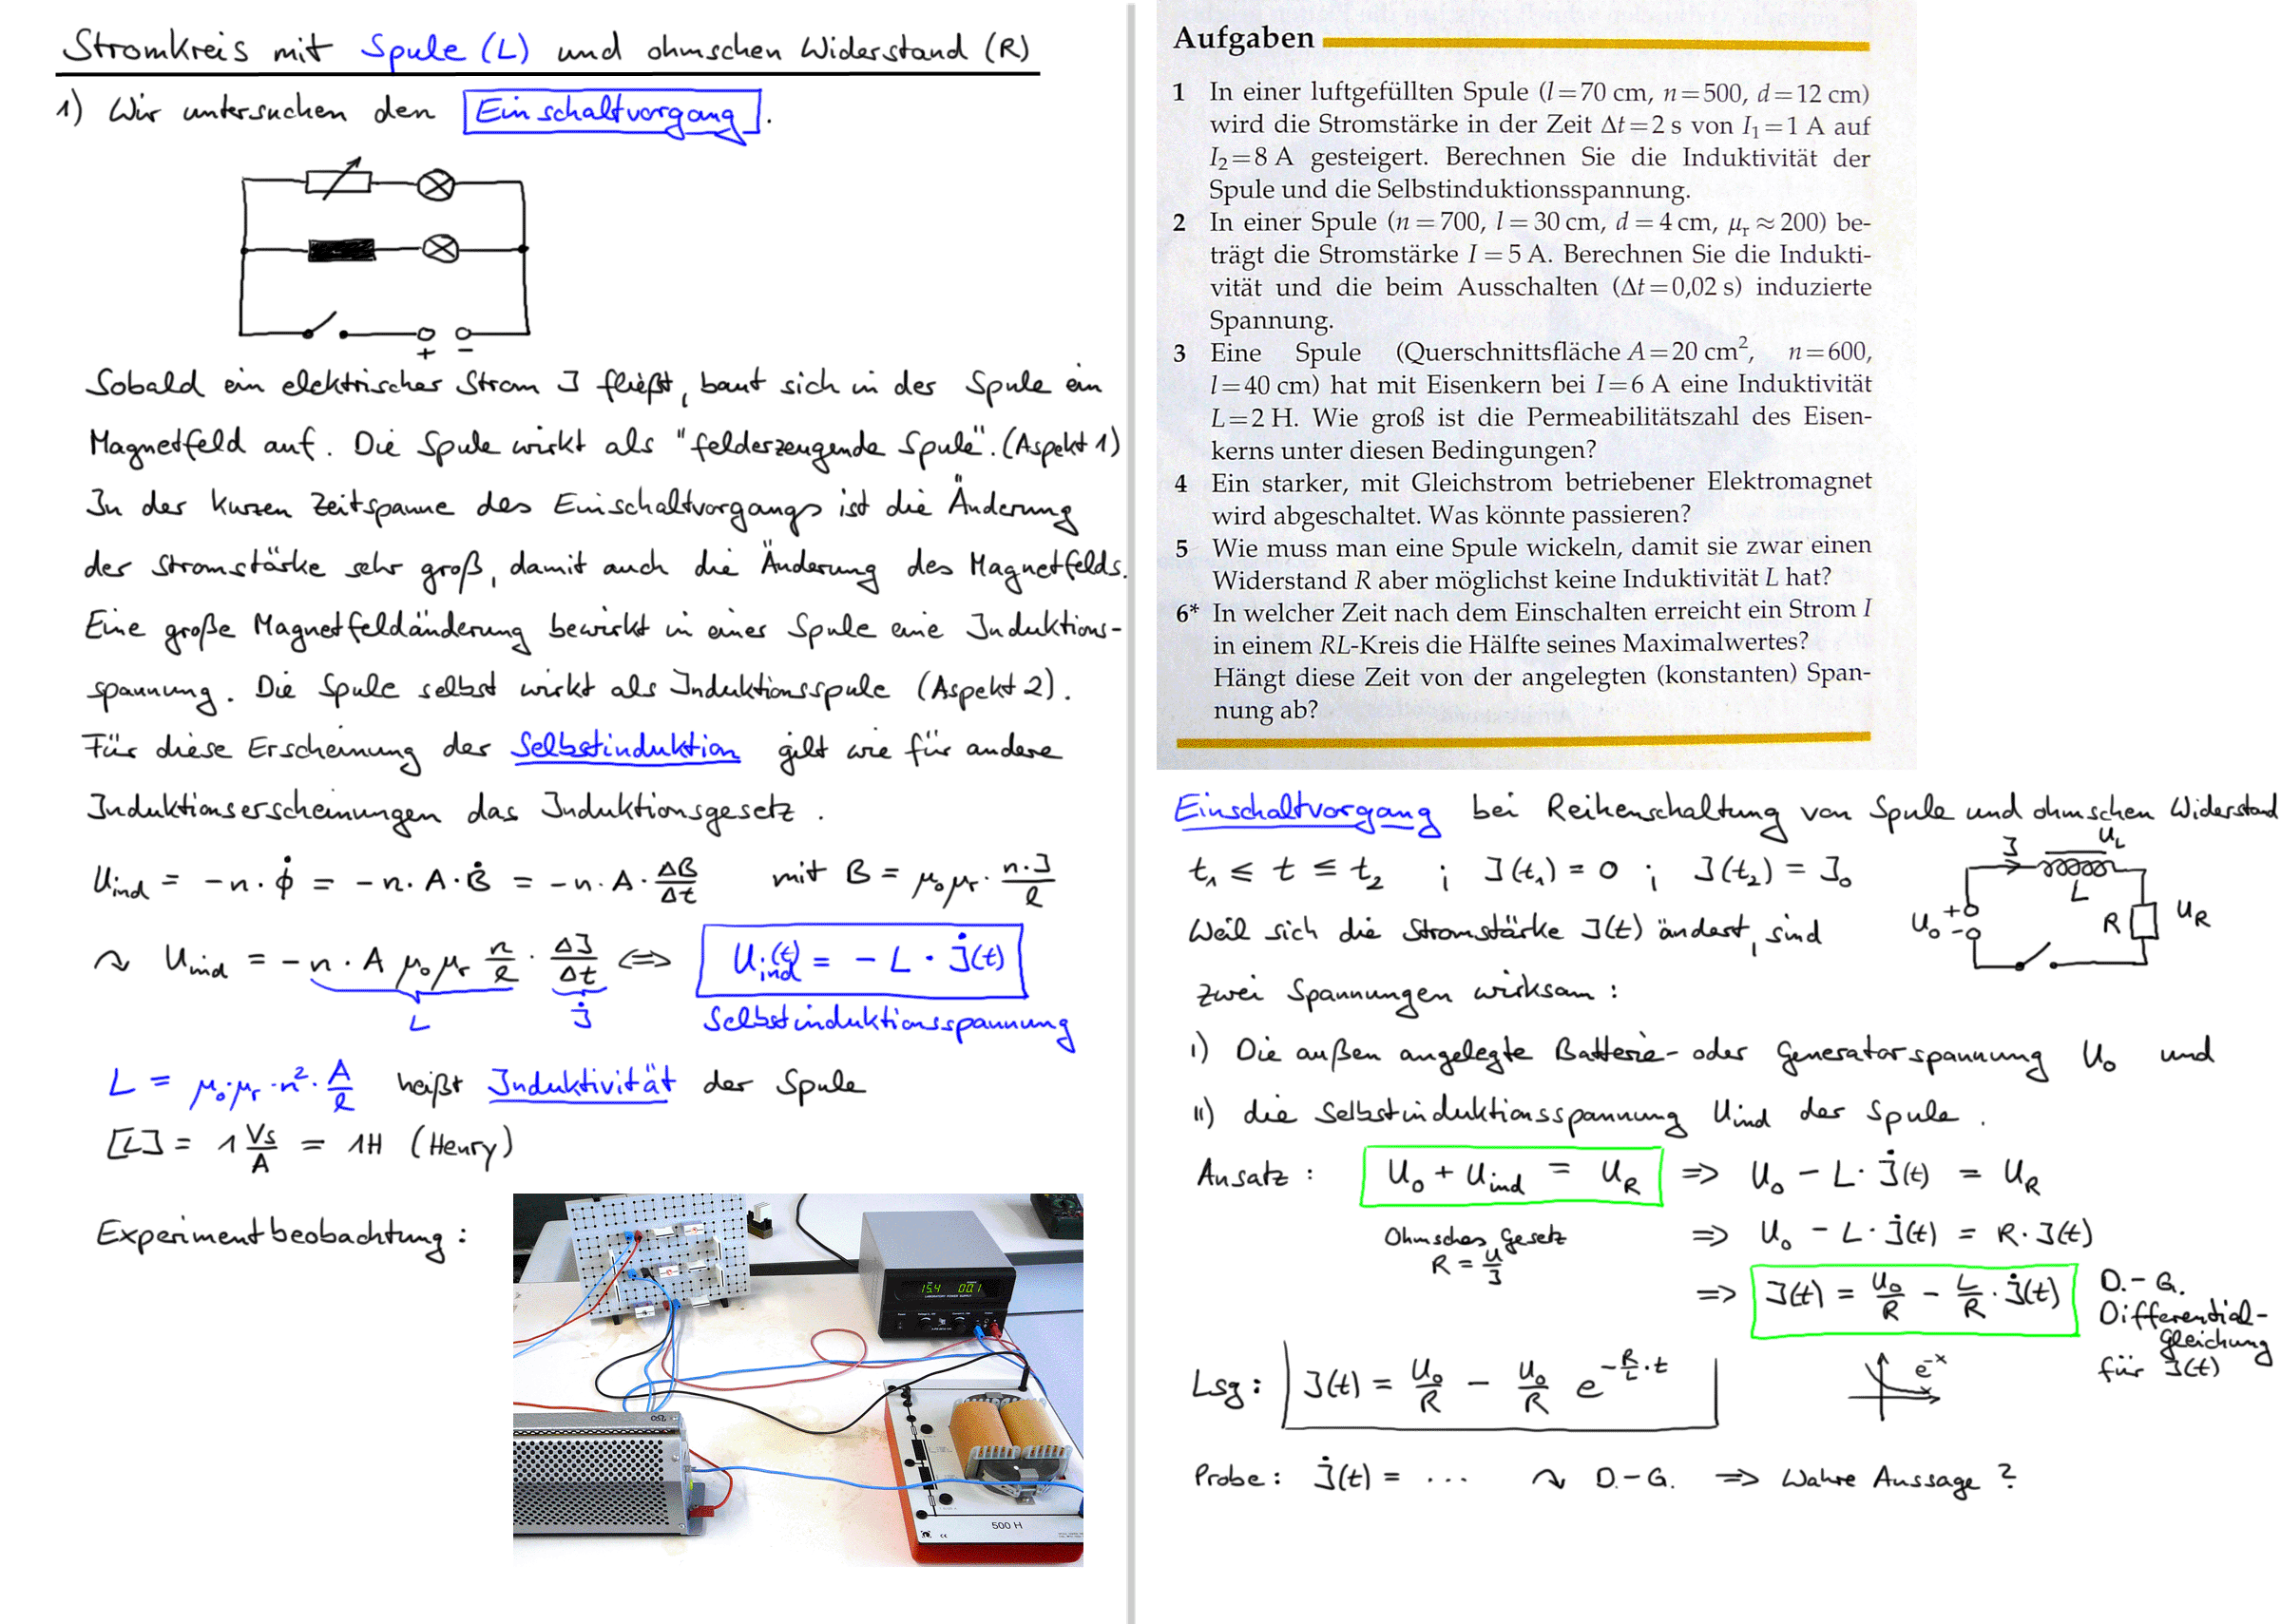 Stromkreis mit Spule (L) und ohmschen Widerstand (R)
1) Wir untersuchen den Einschaltvorgang.
+ −
Sobald ein elektrischer Strom I fließt, baut sich in der Spule ein
Magnetfeld auf. Die Spule wirkt als "felderzeugende Spule". (Aspekt 1)
In der kurzen Zeitspanne des Einschaltvorgangs ist die Änderung
der Stromstärke sehr groß, damit auch die Änderung des Magnetfelds.
Eine große Magnetfeldänderung bewirkt in einer Spule eine Induktions-
spannung. Die Spule selbst wirkt als Induktionsspule (Aspekt 2).
Für diese Erscheinung der Selbstinduktion gilt wie für andere
Induktionserscheinungen das Induktionsgesetz.
U_ind = −n · ϕ̇ = −n · A · Ḃ = −n · A · ΔB/Δt mit B = μ₀μᵣ · n·I/l
↷ U_ind = −n · A μ₀μᵣ n/l · ΔI/Δt ⇔ U_ind(t) = −L · İ(t)
L İ Selbstinduktionsspannung
L = μ₀·μᵣ·n²·A/l heißt Induktivität der Spule
[L] = 1 Vs/A = 1H (Henry)
Experimentbeobachtung:
15.4 00.1
LABORATORY POWER SUPPLY
500 H
Aufgaben
1 In einer luftgefüllten Spule (l=70 cm, n=500, d=12 cm)
wird die Stromstärke in der Zeit Δt=2 s von I₁=1 A auf
I₂=8 A gesteigert. Berechnen Sie die Induktivität der
Spule und die Selbstinduktionsspannung.
2 In einer Spule (n=700, l=30 cm, d=4 cm, μᵣ≈200) be-
trägt die Stromstärke I=5 A. Berechnen Sie die Indukti-
vität und die beim Ausschalten (Δt=0,02 s) induzierte
Spannung.
3 Eine Spule (Querschnittsfläche A=20 cm², n=600,
l=40 cm) hat mit Eisenkern bei I=6 A eine Induktivität
L=2 H. Wie groß ist die Permeabilitätszahl des Eisen-
kerns unter diesen Bedingungen?
4 Ein starker, mit Gleichstrom betriebener Elektromagnet
wird abgeschaltet. Was könnte passieren?
5 Wie muss man eine Spule wickeln, damit sie zwar einen
Widerstand R aber möglichst keine Induktivität L hat?
6* In welcher Zeit nach dem Einschalten erreicht ein Strom I
in einem RL-Kreis die Hälfte seines Maximalwertes?
Hängt diese Zeit von der angelegten (konstanten) Span-
nung ab?
Einschaltvorgang bei Reihenschaltung von Spule und ohmschen Widerstand
t₁ ≤ t ≤ t₂ ; I(t₁) = 0 ; I(t₂) = I₀
I U_L L
U₀ + − R U_R
Weil sich die Stromstärke I(t) ändert, sind
zwei Spannungen wirksam:
I) Die außen angelegte Batterie- oder Generatorspannung U₀ und
II) die Selbstinduktionsspannung U_ind der Spule.
Ansatz: U₀ + U_ind = U_R ⇒ U₀ − L · İ(t) = U_R
Ohmsches Gesetz R = U/I
⇒ U₀ − L · İ(t) = R · I(t)
⇒ I(t) = U₀/R − L/R · İ(t)
D.-G.
Differential-
gleichung
für I(t)
Lsg: I(t) = U₀/R − U₀/R e^(−R/L · t)
e^−x
x
Probe: İ(t) = ... ↷ D.-G. ⇒ Wahre Aussage?